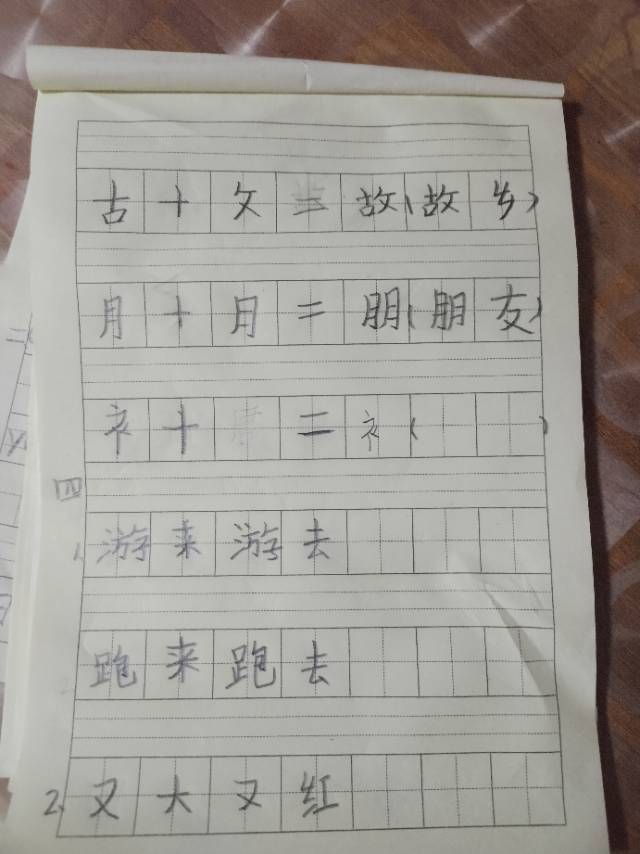 古+攵=故(故乡)
月+月=朋(朋友)
衤+ =衤( )
四
1、游来游去
跑来跑去
2、又大又红